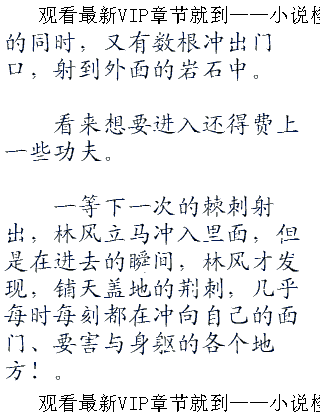 观看最新VIP章节就到——小说
的同时，又有数根冲出门
口，射到外面的岩石中。
看来想要进入还得费上
一些功夫。
一等下一次的棘刺射
出，林风立马冲入里面，但
是在进去的瞬间，林风才发
现，铺天盖地的荆刺，几乎
每时每刻都在冲向自己的面
门、要害与身躯的各个地
方！。
观看最新VIP章节就到——小说